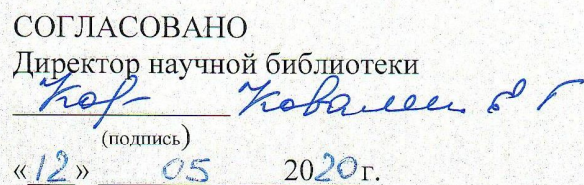 СОГЛАСОВАНО
Директор научной библиотеки
(подпись)
«12» 05 2020 г.